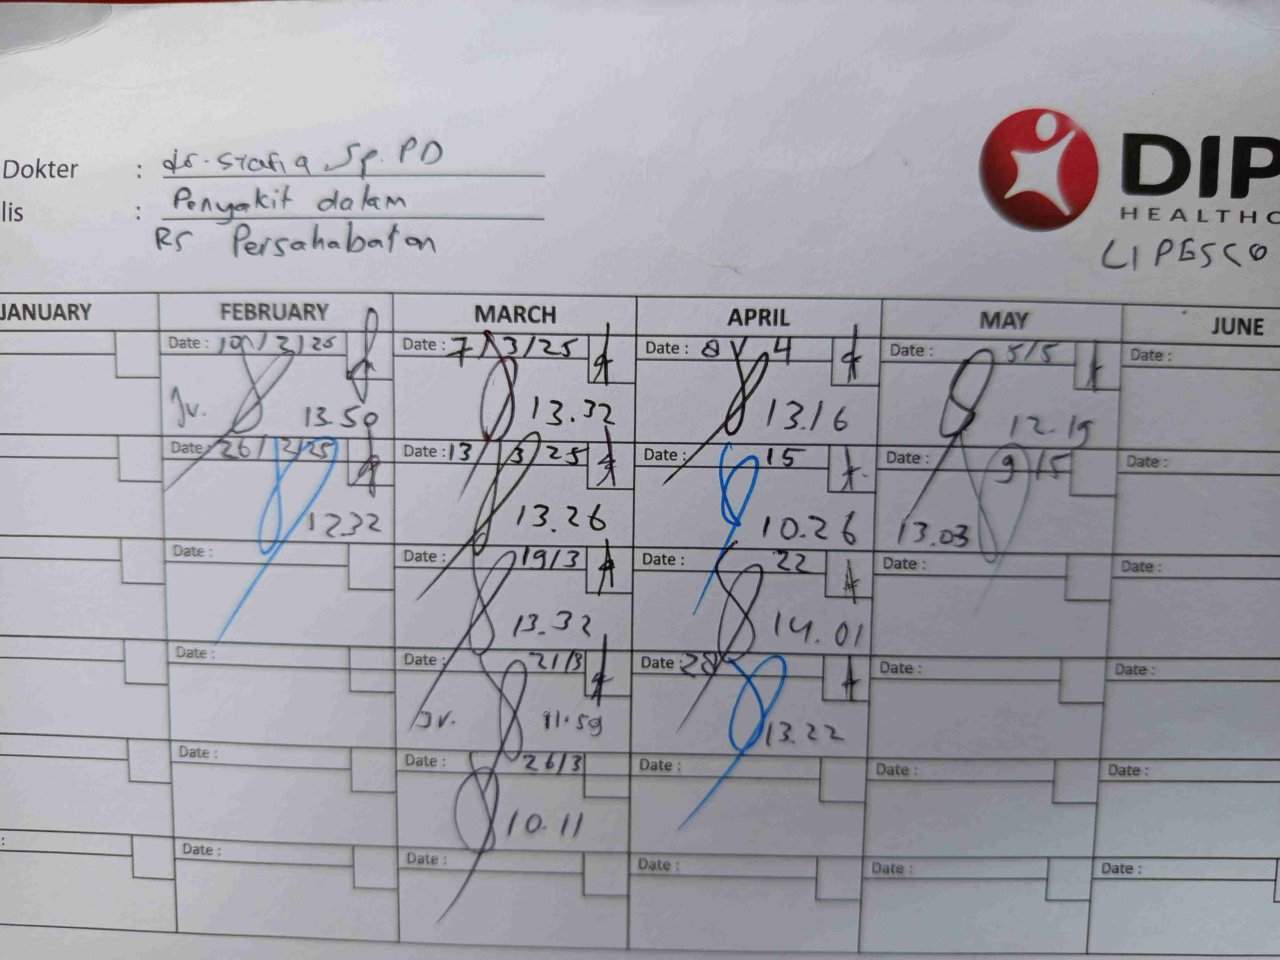 Dokter : dr. Syafiq Sp. PD
lis : Penyakit dalam
RS Persahabatan
DIP
HEALTHC
LIPESCO
JANUARY FEBRUARY MARCH APRIL MAY JUNE
Date : 10/2/25 Date : 7/3/25 Date : 8/4 Date : 5/5 Date :
Jv. 13.50 13.32 13.16 12.19
Date : 26/2/25 Date : 13/3/25 Date : 15 Date : 9/5 Date :
12.32 13.26 10.26 13.03
Date : Date : 19/3 Date : 22 Date : Date :
13.32 14.01
Date : Date : 21/3 Date : 28 Date : Date :
Jv. 11.59 13.22
Date : Date : 26/3 Date : Date : Date :
10.11
: Date : Date : Date : Date : Date :